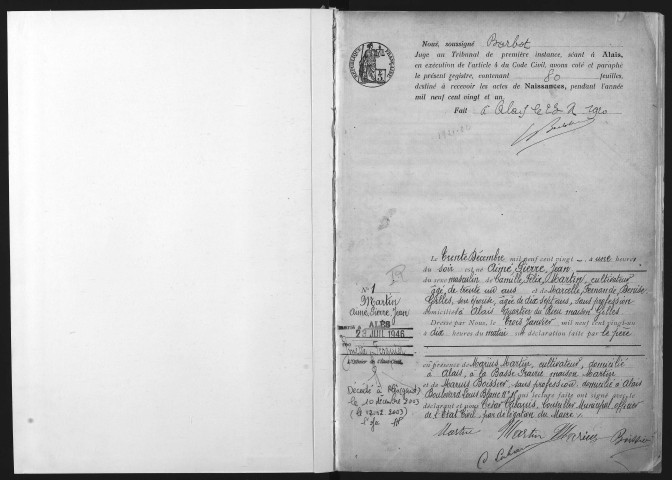 Nous, soussigné Barbot
Juge au Tribunal de première instance, séant à Alais,
en exécution de l'article 4 du Code Civil, avons coté et paraphé
le présent registre, contenant 80 feuilles,
destiné à recevoir les actes de Naissances, pendant l'année
mil neuf cent vingt et un
Fait à Alais le 1920
Le trente Décembre mil neuf cent vingt à une heure
du soir est né Aimé, Pierre, Jean,
du sexe masculin de Camille Félix Martin, cultivateur
âgé de trente un ans et de Marcelle Fernande Denise
Gilles, son épouse, âgée de dix sept ans, sans profession
domiciliés à Alais, Quartier du Rieu maison Gilles
Dressé par Nous, le trois Janvier mil neuf cent vingt-un
à dix heures du matin sur déclaration faite par le père
en présence de Marius Martin, cultivateur, domicilié
à Alais, à la Basse Prairie maison Martin
et de Marius Boissier, sans profession, domicilié à Alais
Boulevard Louis Blanc qui lecture faite ont signé avec le
déclarant et nous César Cabanis, Conseiller Municipal officier
de l'Etat Civil, par délégation du Maire.
Martin Martin Marius Boissier
N° 1
Martin
Aimé, Pierre, Jean
ALÈS
JUIN 1946
L'Officier de l'Etat-Civil,
Décédé à Alès (Gard)
le 10 décembre 2003
(le 12.12.2003)